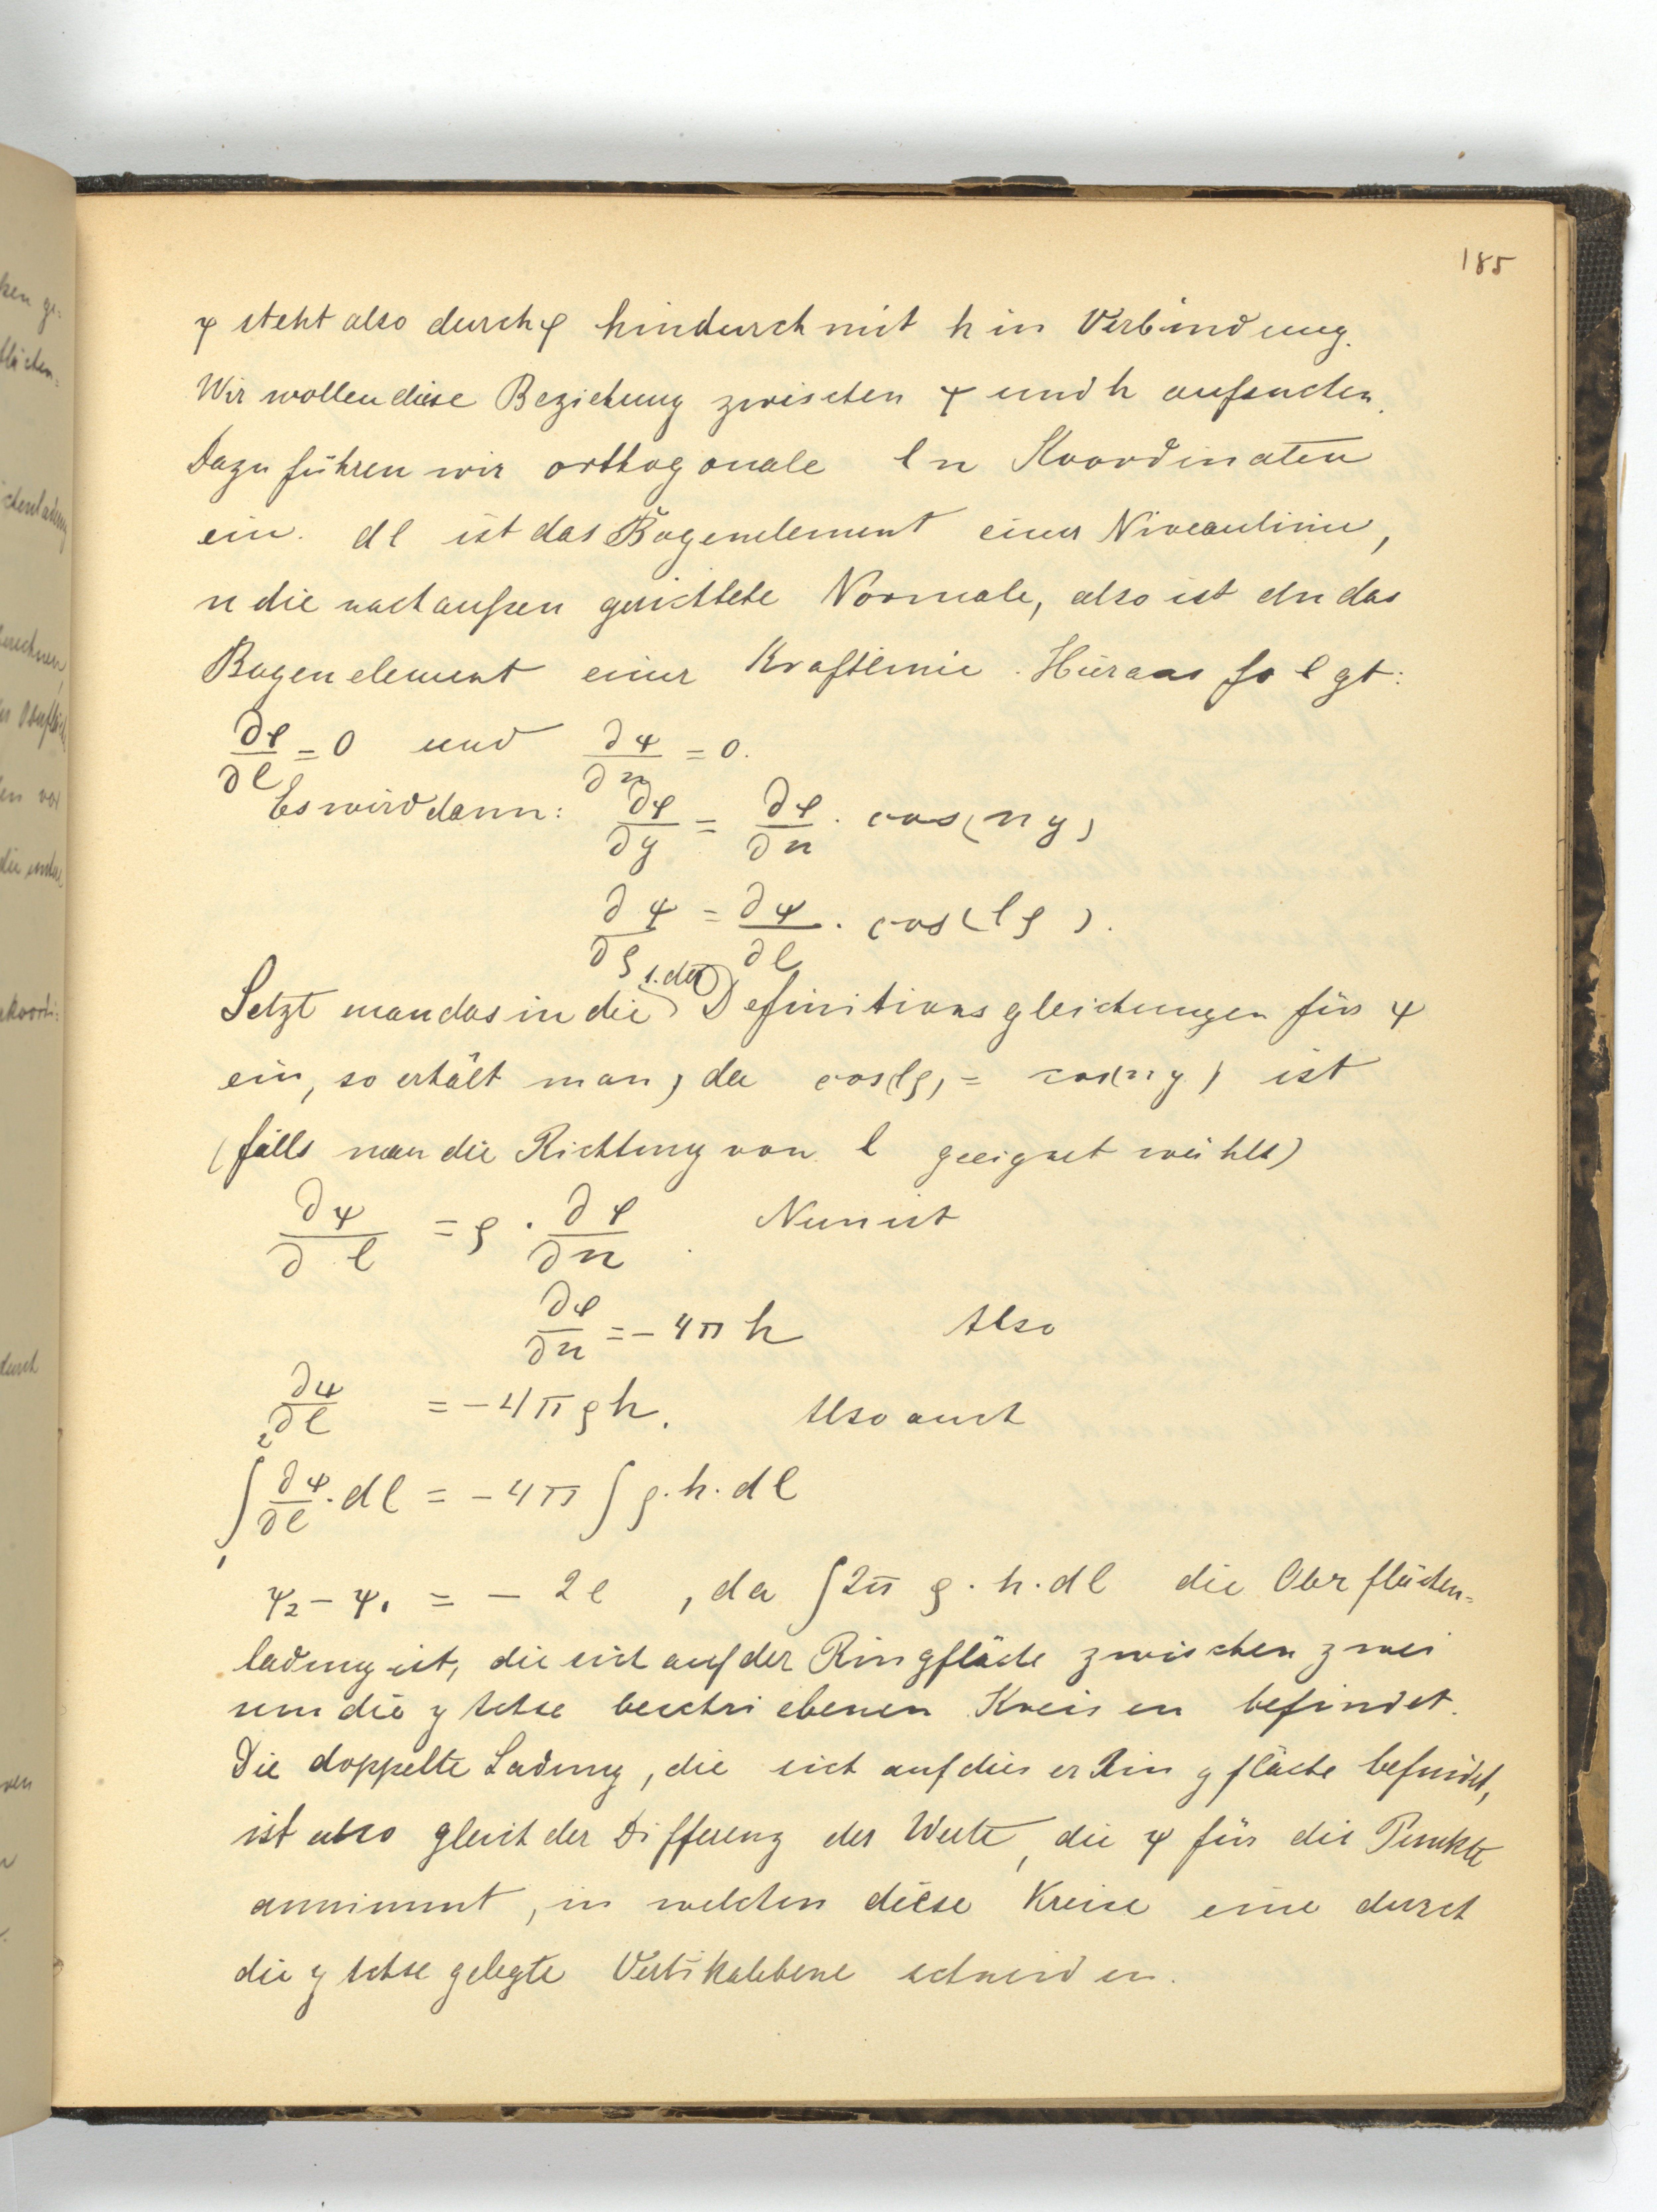 185
ψ steht also durch φ hindurch mit h in Verbindung.
Wir wollen diese Beziehung zwischen ψ und h aufsuchen.
Dazu führen wir orthogonale l n Koordinaten
ein. dl ist das Bogenelement einer Niveaulinie,
n die nach außen gerichtete Normale, also ist dn das
Bogenelement einer Kraftlinie. Hieraus folgt:
∂φ/∂l = 0 und ∂ψ/∂n = 0.
Es wird dann: ∂φ/∂y = ∂φ/∂n · cos(n y)
∂ψ/∂ρ = ∂ψ/∂l · cos(l ρ).
1. der
Setzt man das in die Definitionsgleichungen für ψ
ein, so erhält man, da cos(lρ) = cos(n y) ist
(falls man die Richtung von l geeignet wählt)
∂ψ/∂l = ρ · ∂φ/∂n. Nun ist
∂φ/∂n = - 4π h Also
∂ψ/∂l = - 4π ρ h. Also auch
∫₁² ∂ψ/∂l · dl = - 4π ∫ ρ · h · dl
ψ₂ - ψ₁ = - 2e, da ∫ 2π ρ · h · dl die Oberflächen=
ladung ist, die sich auf der Ringfläche zwischen zwei
um die y Achse beschriebenen Kreisen befindet.
Die doppelte Ladung, die sich auf dieser Ringfläche befindet,
ist also gleich der Differenz der Werte, die ψ für die Punkte
annimmt, in welchen diese Kreise eine durch
die y Achse gelegte Vertikalebene schneiden.